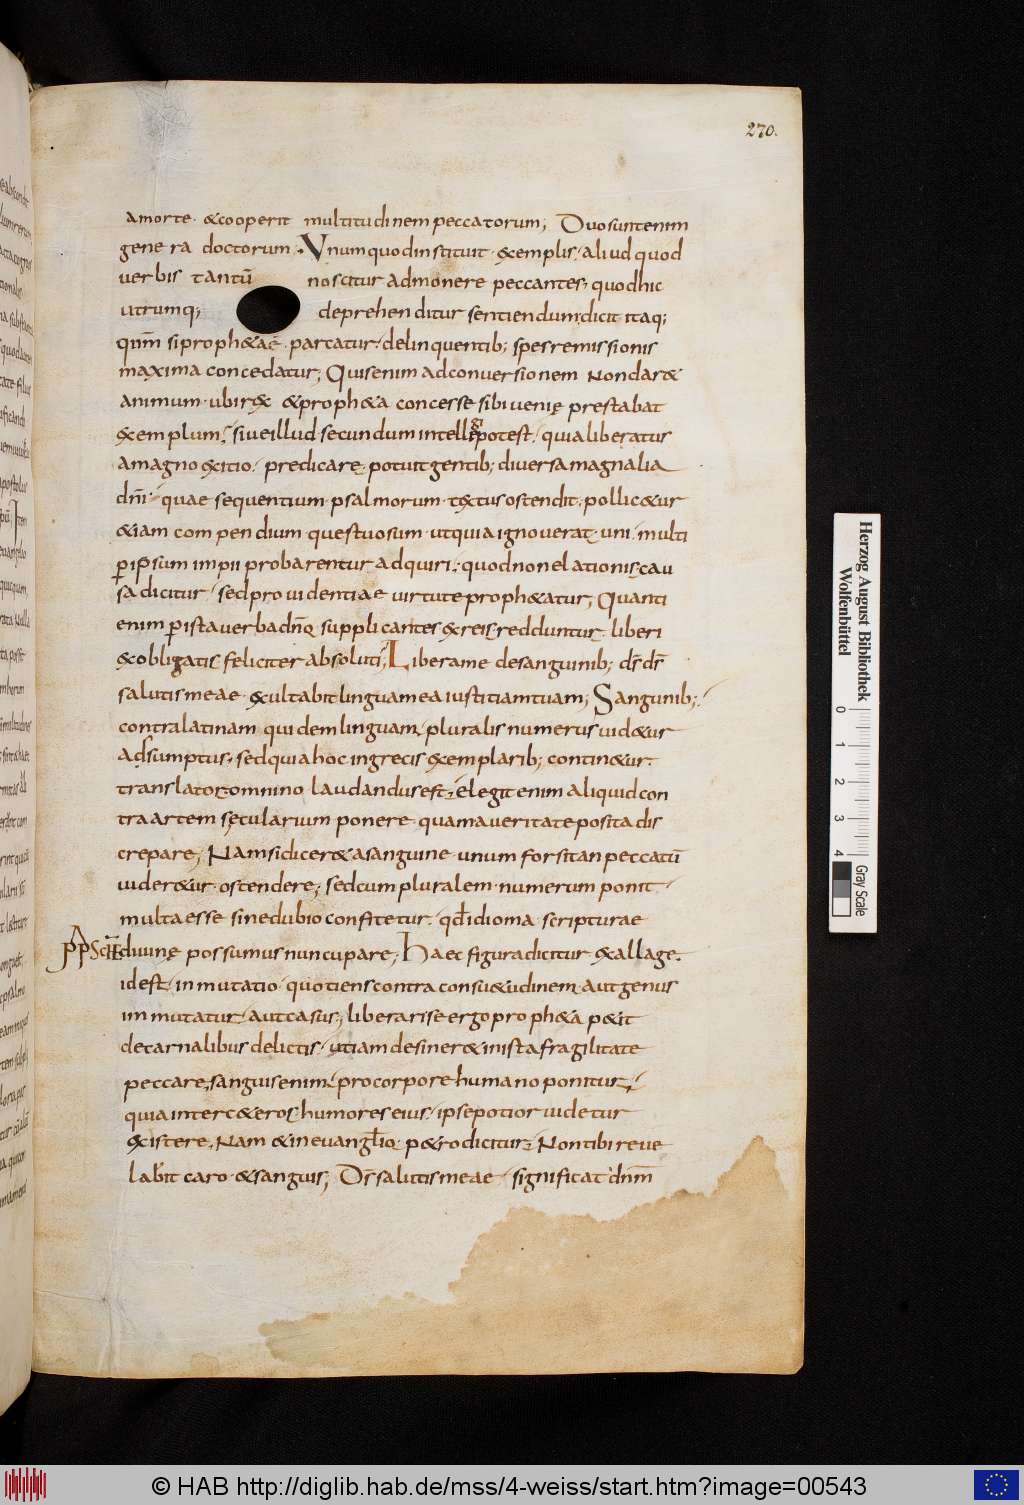 270.
a morte · & cooperit multitudinem peccatorum; Duo sunt enim
genera doctorum · Vnum quod instituit · exemplis · aliud quod
verbis tantū noscitur admonere peccantes · quod hic
utrumq; deprehenditur sentiendum, dicit itaq;
qm̄ si proph&ae · parcatur · delinquentib; spes remissionis
maxima concedatur; Quis enim ad conversionem non dar&
animum · ubi rex & proph&a concesse sibi venię prestabat
exemplum; sive illud secundum intellegi potest · quia liberatur
a magno exitio · predicare potuit gentib; diversa magnalia
dn̄i · quae sequentium psalmorum · textus ostendit · pollic&ur
&iam compendium questuosum · ut quia ignoverat uni · multi
p ipsum impii probarentur adquiri · quod non elationis cau
sa dicitur · sed providentiae virtute proph&atur; Quanti
enim p ista verba dn̄o supplicantes ex reis redduntur liberi
ex obligatis feliciter absoluti; Libera me de sanguinib; ds̄ ds̄
salutis meae · exultabit lingua mea iustitiam tuam; Sanguinib;
contra latinam quidem linguam · pluralis numerus vid&ur
adsumptus · sed quia hoc in grecis exemplarib; contin&ur ·
translator omnino laudandus est · elegit enim aliquid con
tra artem secularium ponere quam a veritate posita dis
crepare; Nam si dicer& a sanguine unum forsitan peccatū
vider&ur · ostendere; sed cum pluralem · numerum ponit ·
multa esse sine dubio confitetur · qd̄ idioma scripturae
divinę possumus nuncupare; Haec figura dicitur exallage ·
id est · inmutatio · quotiens contra consu&udinem aut genus
immutatur aut casus; liberari se ergo proph&a p&it
de carnalibus delictis · ut iam desiner& in ista fragilitate
peccare, sanguis enim · pro corpore humano ponitur ·
quia inter c&eros humores eius · ipse potior videtur
existere · Nam & in evangl̄io p&ro dicitur · Non tibi reve
labit caro · & sanguis; Ds̄ salutis meae · significat dn̄m
Herzog August Bibliothek
Wolfenbüttel
0 1 2 3 4
Gray Scale
© HAB http://diglib.hab.de/mss/4-weiss/start.htm?image=00543